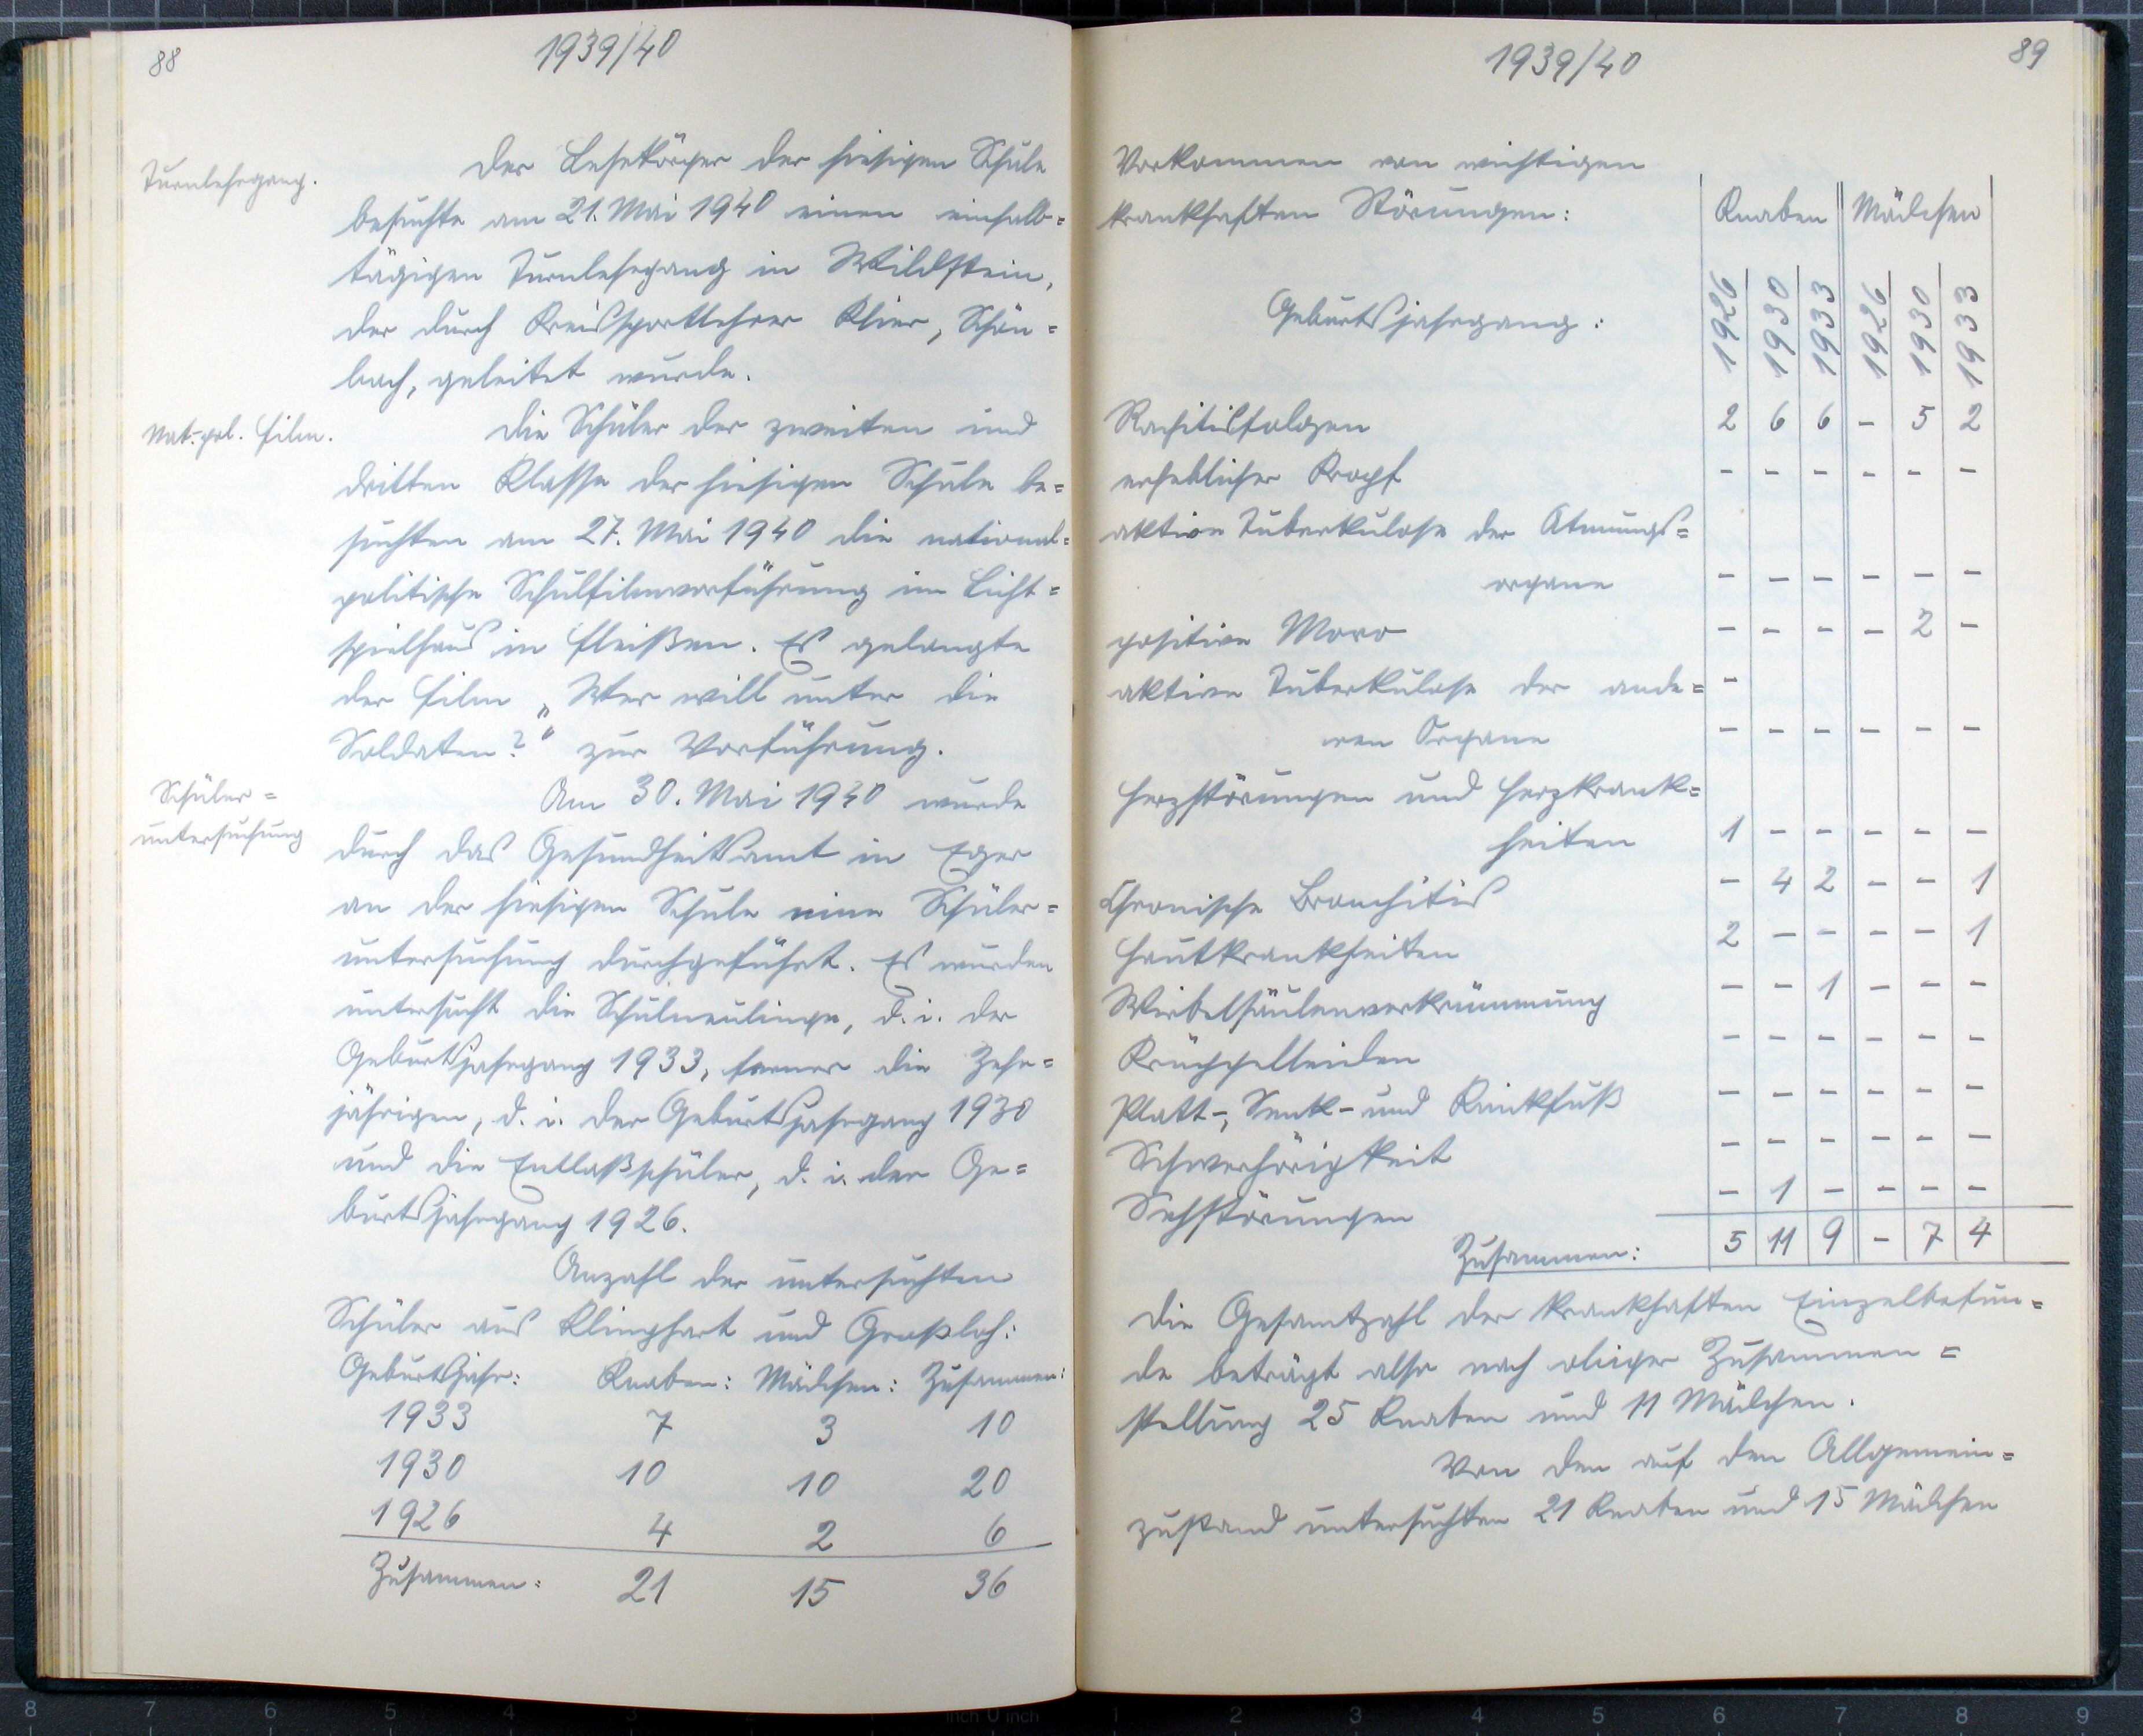 88
1939/40
Turnlehrgang.
Der Lehrkörper der hiesigen Schule
besuchte am 21. Mai 1940 einen einhalb=
tägigen Turnlehrgang in Wildstein,
der durch Kreissportlehrer Klier, Schön=
bach, geleitet wurde.
Nat.-pol. Film.
Die Schüler der zweiten und
dritten Klasse der hiesigen Schule be=
suchten am 27. Mai 1940 die national=
politische Schulfilmvorführung im Licht=
spielhaus in Fleißen. Es gelangte
der Film „Wer will unter die
Soldaten?" zur Vorführung.
Schüler=
untersuchung
Am 30. Mai 1940 wurde
durch das Gesundheitsamt in Eger
an der hiesigen Schule eine Schüler=
untersuchung durchgeführt. Es wurden
untersucht die Schulneulinge, d. i. der
Geburtsjahrgang 1933, ferner die Zehn=
jährigen, d. i. der Geburtsjahrgang 1930
und die Entlaßschüler, d. i. der Ge=
burtsjahrgang 1926.
Anzahl der untersuchten
Schüler aus Klinghart und Großloh:
Geburtsjahr: Knaben: Mädchen: Zusammen:
1933 7 3 10
1930 10 10 20
1926 4 2 6
Zusammen: 21 15 36
1939/40
89
Vorkommen von wichtigen
krankhaften Störungen: Knaben Mädchen
Geburtsjahrgang: 1926 1930 1933 1926 1930 1933
Rachitisfolgen 2 6 6 - 5 2
erheblicher Kropf - - - - - -
aktive Tuberkulose der Atmungs=
organe - - - - - -
positive Moro - - - - 2 -
aktive Tuberkulose der ande= -
ren Organe - - - - - -
Herzstörungen und Herzkrank=
heiten 1 - - - - -
Chronische Bronchitis - 4 2 - - 1
Hautkrankheiten 2 - - - - 1
Wirbelsäulenverkrümmung - - 1 - - -
Krüppelleiden - - - - - -
Platt-, Senk- und Knickfuß - - - - - -
Schwerhörigkeit - - - - - -
Sehstörungen - 1 - - - -
Zusammen: 5 11 9 - 7 4
Die Gesamtzahl der krankhaften Einzelbefun=
de beträgt also nach obiger Zusammen=
stellung 25 Knaben und 11 Mädchen.
Von den auf den Allgemein=
zustand untersuchten 21 Knaben und 15 Mädchen